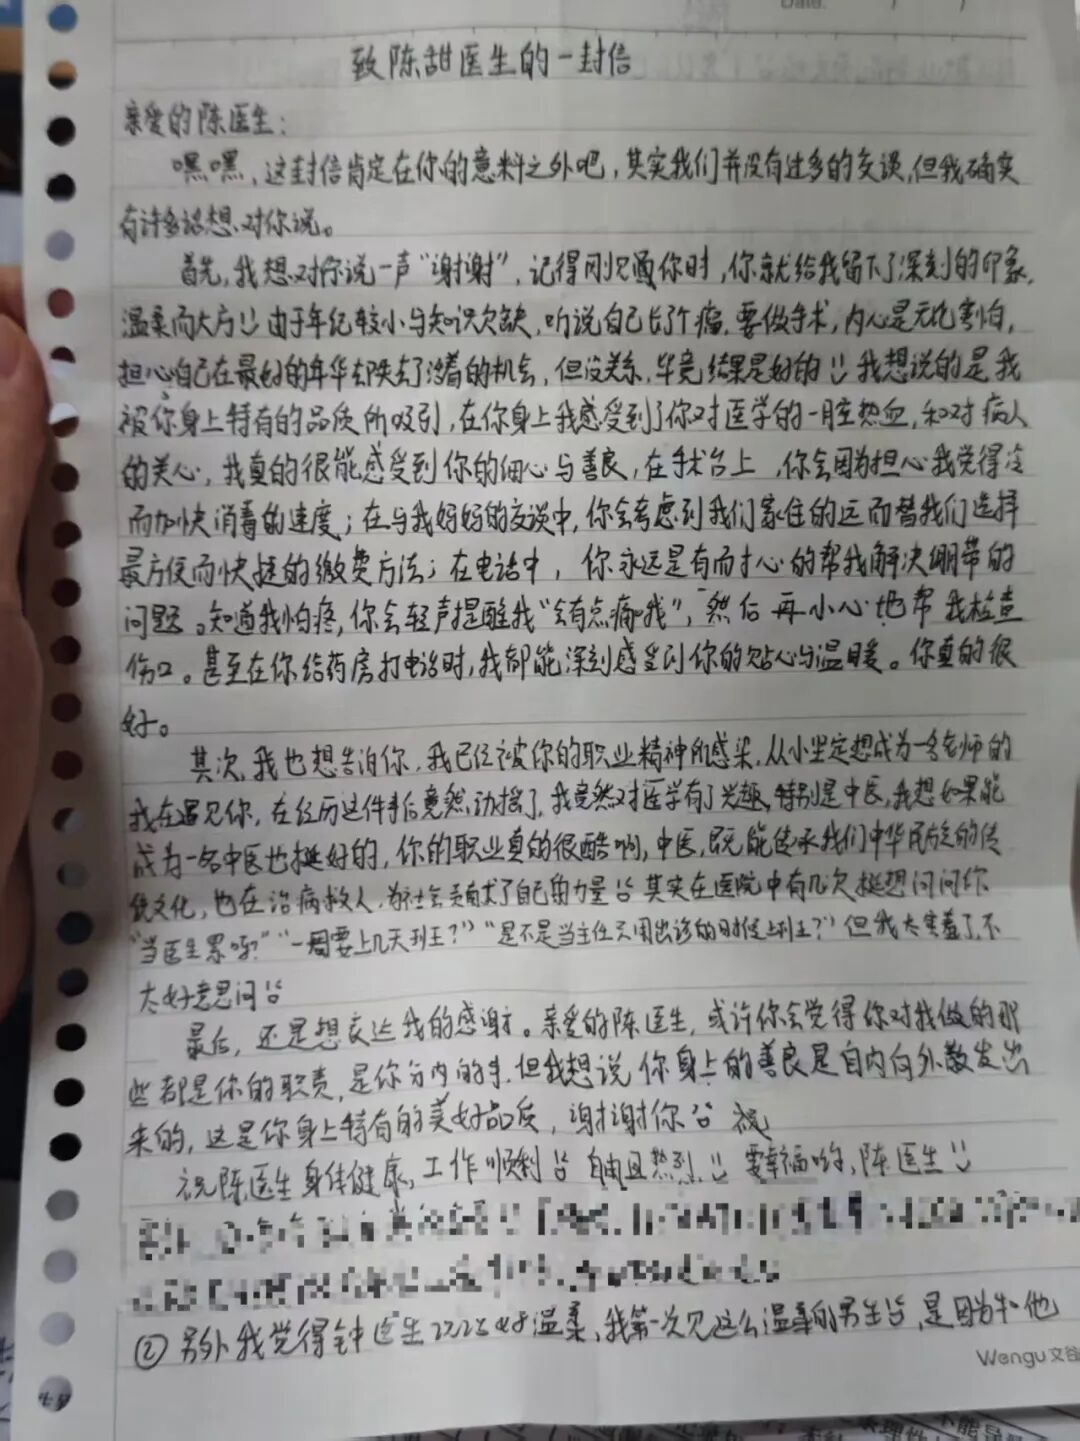 Date:
致陈甜医生的一封信
亲爱的陈医生:
嘿嘿,这封信肯定在你的意料之外吧,其实我们并没有过多的交谈,但我确实
有许多话想对你说。
首先,我想对你说一声“谢谢”,记得刚见面你时,你就给我留下了深刻的印象,
温柔而大方!!由于年纪较小与知识欠缺,听说自己长了个瘤,要做手术,内心是无比害怕,
担心自己在最好的年华却失去了活着的机会,但没关系,毕竟结果是好的 我想说的是我
被你身上特有的品质所吸引,在你身上我感受到了你对医学的一腔热血,和对病人
的关心,我真的很能感受到你的细心与善良,在手术台上,你会因为担心我觉得冷
而加快消毒的速度;在与我妈妈的交谈中,你会考虑到我们家住的远而替我们选择
最方便而快捷的缴费方法;在电话中,你永远是有耐心的帮我解决绷带的
问题。知道我怕疼,你会轻声提醒我“会有点痛哦”,然后再小心地帮我检查
伤口。甚至在你给药房打电话时,我都能深刻感受到你的贴心与温暖。你真的很
好。
其次,我也想告诉你,我已经被你的职业精神所感染,从小坚定想成为一名老师的
我在遇见你,在经历这件事后竟然动摇了,我竟然对医学有了兴趣,特别是中医,我想如果能
成为一名中医也挺好的,你的职业真的很酷啊,中医,既能传承我们中华民族的传
统文化,也在治病救人,为社会贡献了自己的力量 其实在医院中有几次挺想问问你
“当医生累吗?”“一周要上几天班?”“是不是当主任只用出诊的时候上班?”但我太害羞了,不
太好意思问
最后,还是想表达我的感谢。亲爱的陈医生,或许你会觉得你对我做的那
些都是你的职责,是你分内的事,但我想说你身上的善良是自内向外散发出
来的,这是你身上特有的美好品质,谢谢你 祝
祝陈医生身体健康,工作顺利 自由且热烈 要幸福哟,陈医生
② 另外我觉得钟医生 好温柔,我第一次见这么温柔的男生 是因为和他
Wengu 文谷